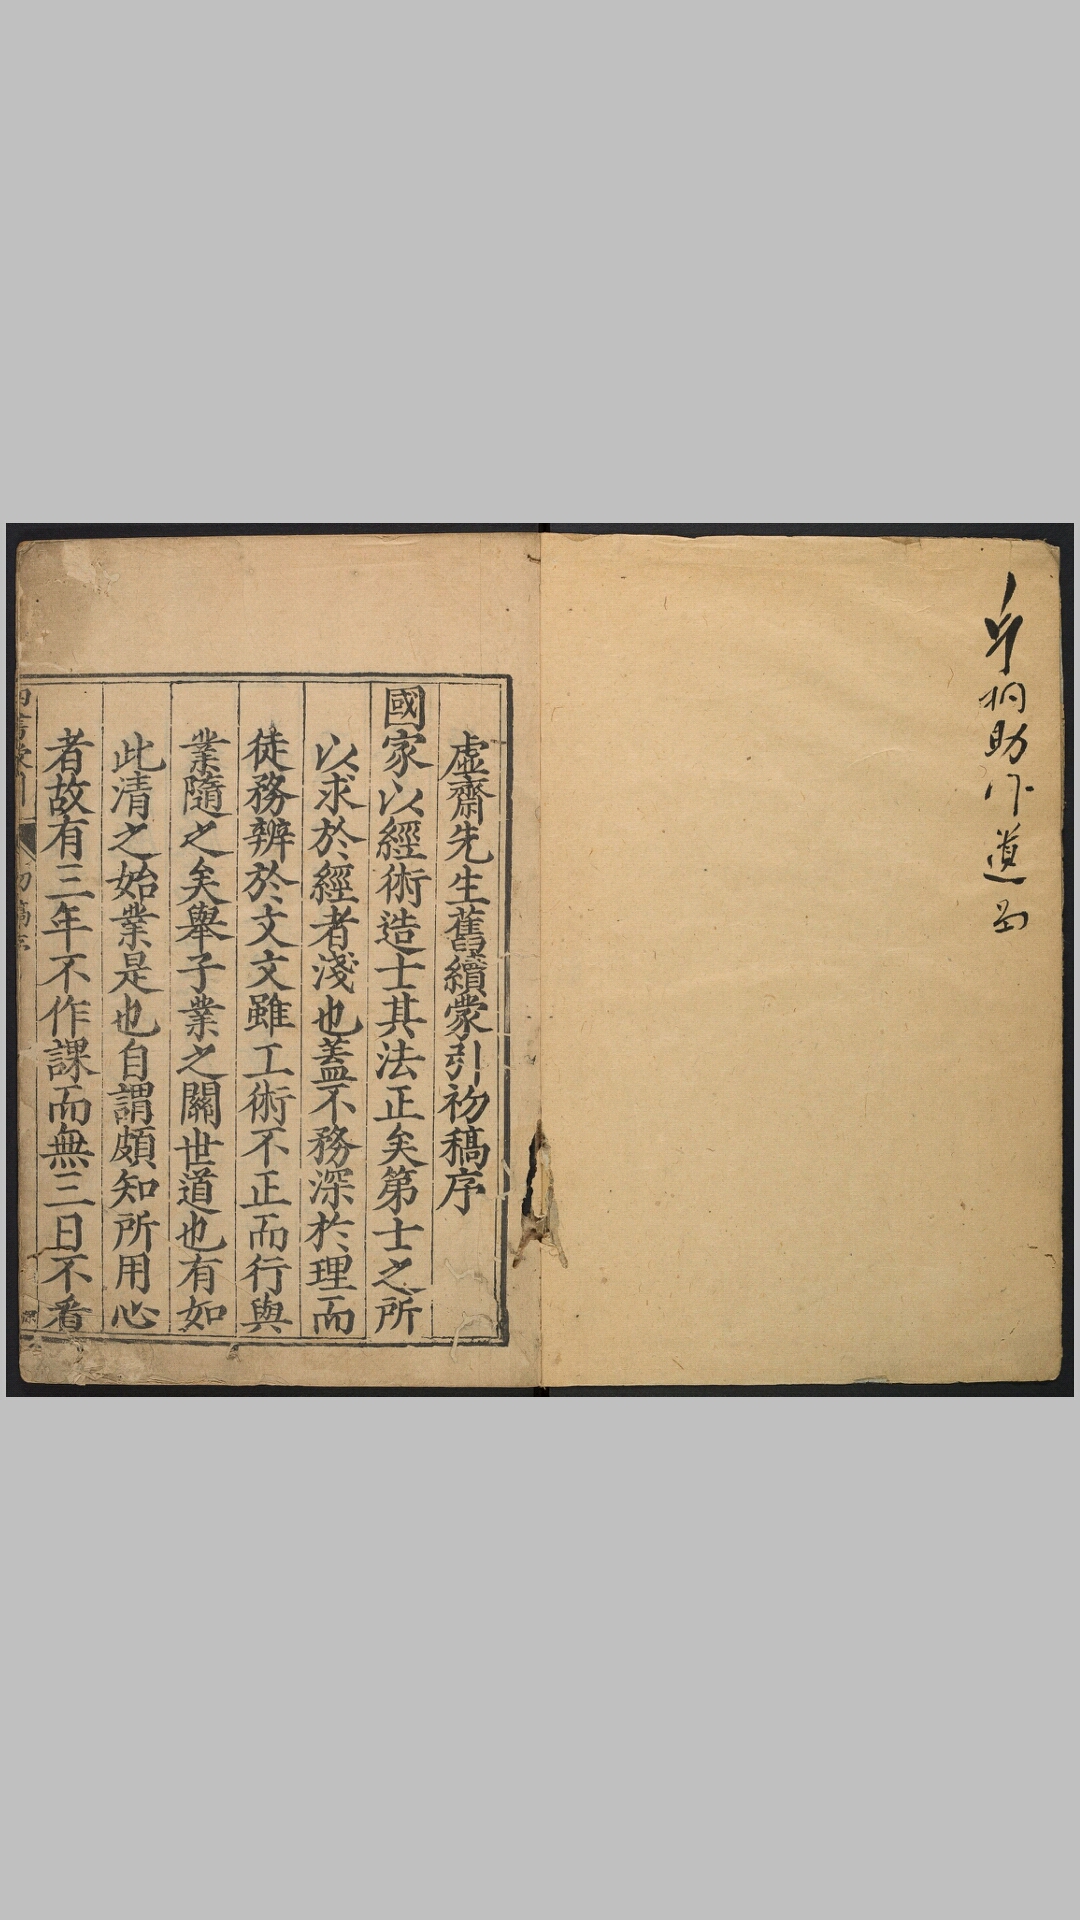 虛齋先生舊續蒙引初稿序
國家以經術造士其法正矣第士之所
以求於經者淺也蓋不務深於理而
徒務辨於文文雖工術不正而行與
業隨之矣舉子業之關世道也有如
此清之始業是也自謂頗知所用心
者故有三年不作課而無三日不看